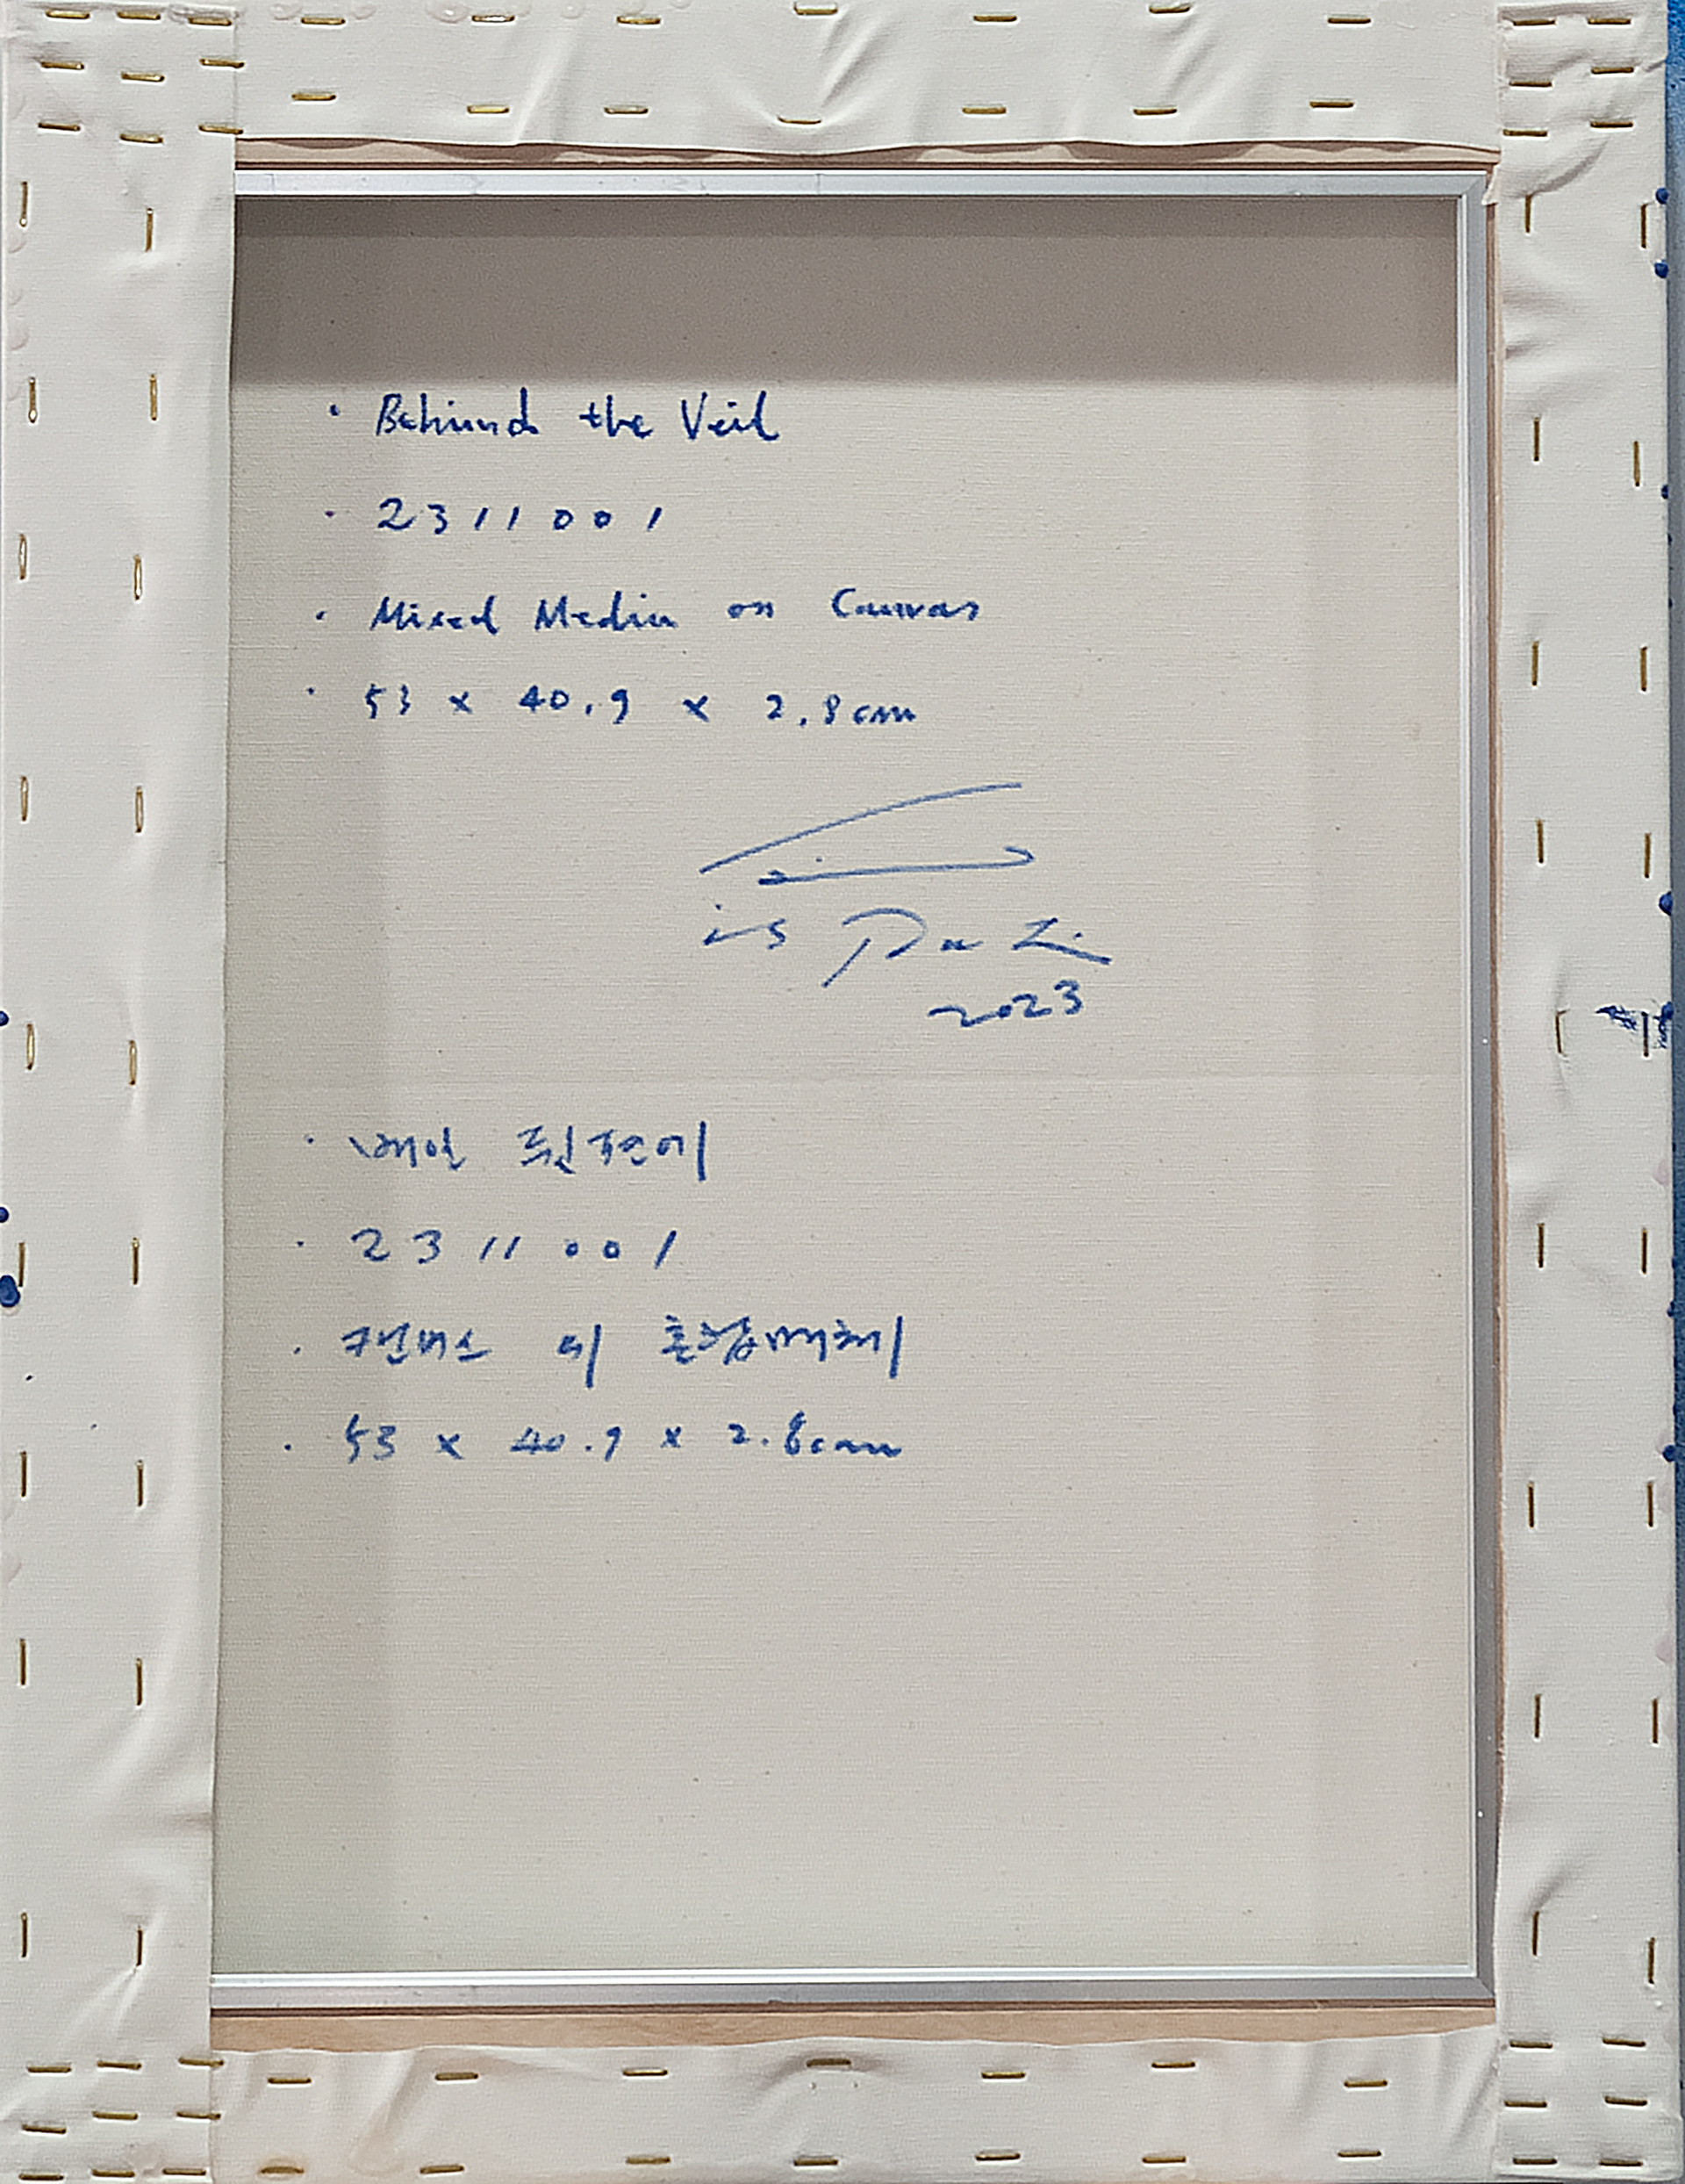 · Behind the Veil
· 2311001
· Mixed Media on Canvas
· 53 x 40.9 x 2.8cm
is
2023
· 베일 뒤편에
· 2311001
· 캔버스 위 혼합매체
· 53 x 40.9 x 2.8cm